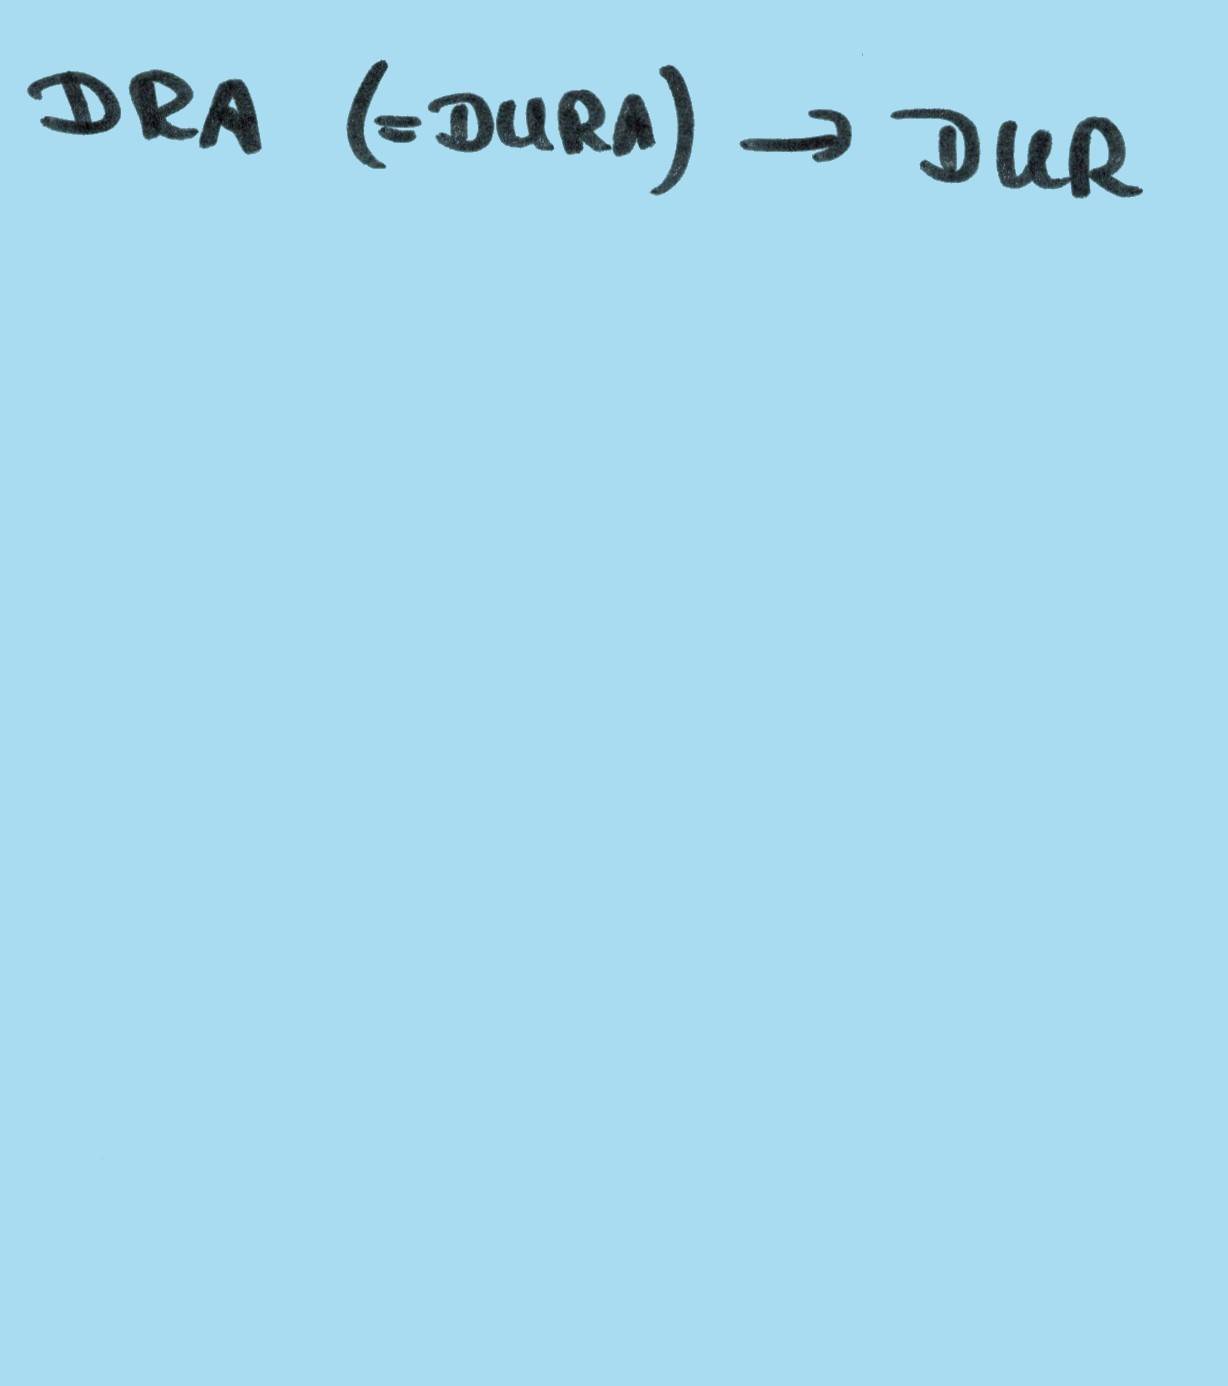 DRA (=DURA) → DUR